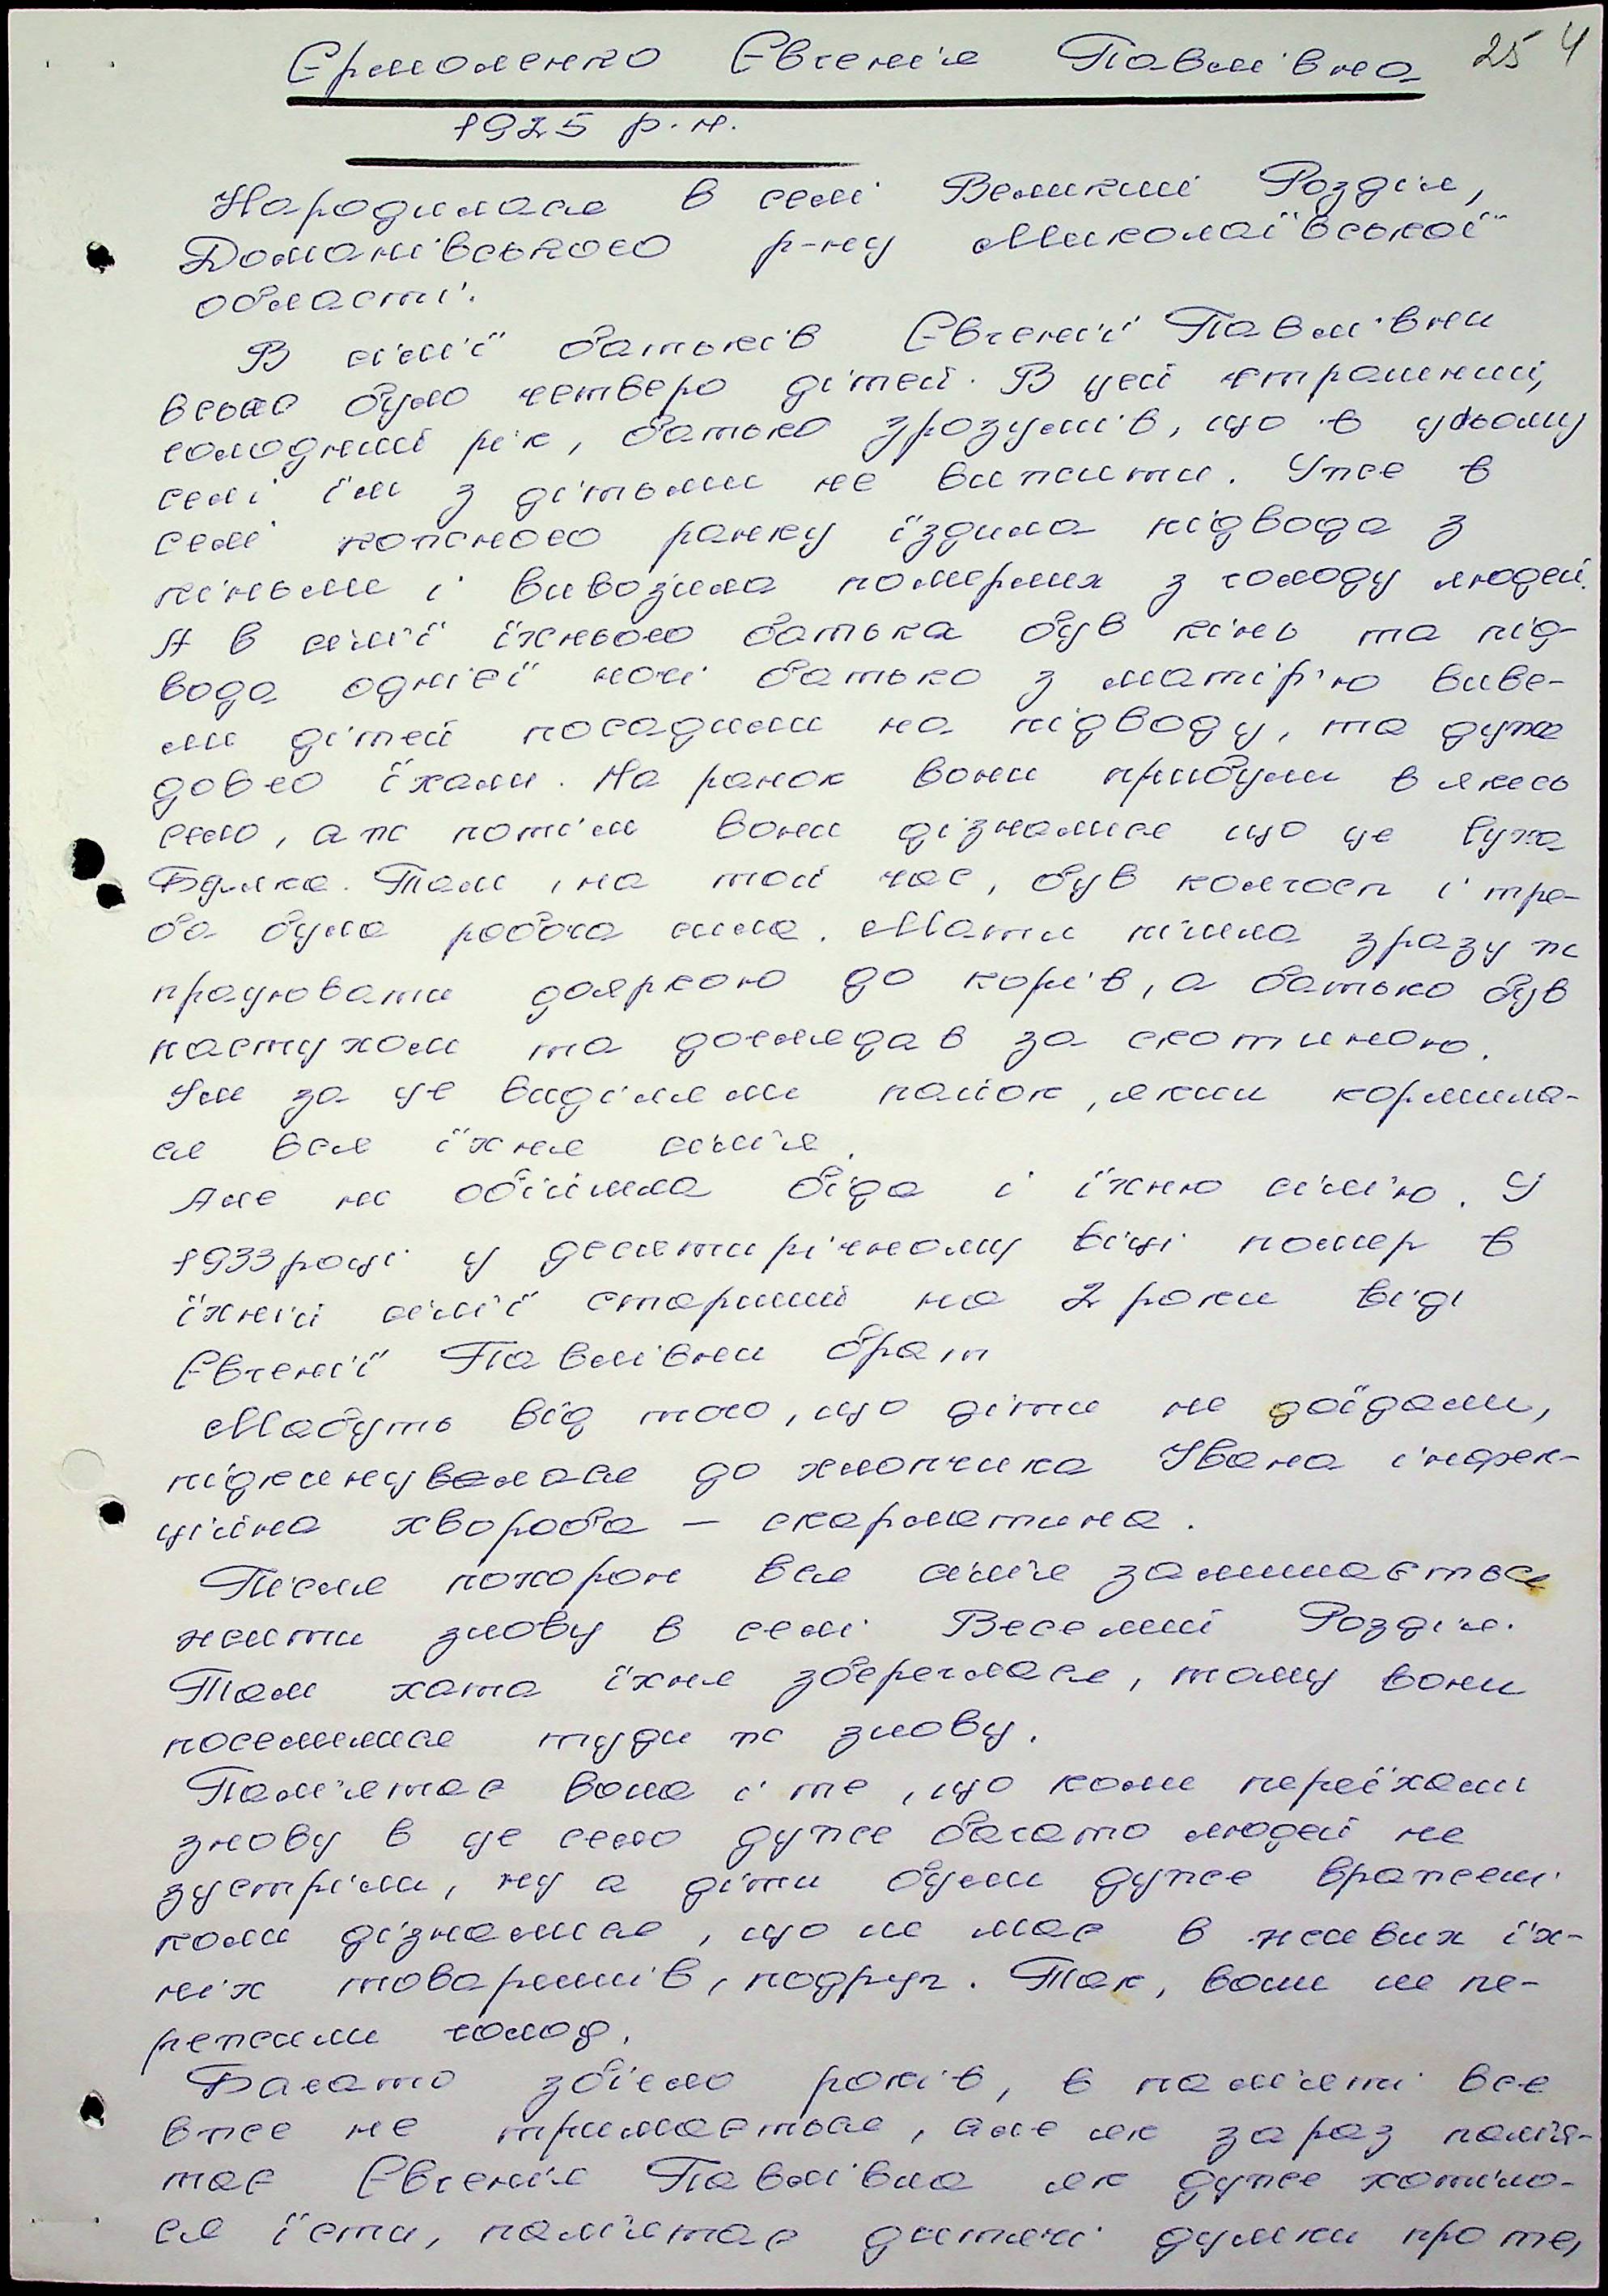 Єрмоленко Євгенія Павлівна 25 4
1925 р.н.
Народилася в селі Великий Розділ,
Доманівського р-ну Миколаївської
області.
В сім'ї батьків Євгенії Павлівни
всьго було четверо дітей. В цей страшний,
голодний рік, батько зрозумів, що в цьому
селі їм з дітьми не вижити. Уже в
селі кожного ранку їздила підвода з
кіньми і вивозила померлих з голоду людей.
А в сім'ї їхнього батька був кінь та під-
вода однієї ночі батько з матір'ю виве-
ли дітей посадили на підводу, та дуже
довго їхали. На ранок вони прибули в якесь
село, аж потім вони дізналися що це Суха
Балка. Там, на той час, був колгосп і тре-
ба була робоча сила. Мати пішла зразу ж
працювати дояркою до корів, а батько був
пастухом та доглядав за скотиною.
Їм за це виділяли пайок, яким кормила-
ся вся їхня сім'я.
Але не обійшла біда і їхню сім'ю. У
1933 році у десятирічному віці помер в
їхній сім'ї старший на 2 роки від
Євгенії Павлівни брат
Мабуть від того, що діти не доїдали,
підкинулася до хлопчика Івана інфек-
ційна хвороба – скарлатина.
Після похорон вся сім'я залишається
жити знову в селі Веселий Розділ.
Там хата їхня збереглася, тому вони
поселилися туди ж знову.
Пам'ятає вона і те, що коли переїхали
знову в це село дуже багато людей не
зустріли, ну а діти були дуже вражені
коли дізналися, що не має в живих їх-
ніх товаришів, подруг. Так, вони не пе-
режили голод.
Багато збігло років, в пам'яті все
вже не тримається, але як зараз пам'я-
тає Євгенія Павлівна як дуже хотіло-
ся їсти, пам'ятає дитячі думки про те,